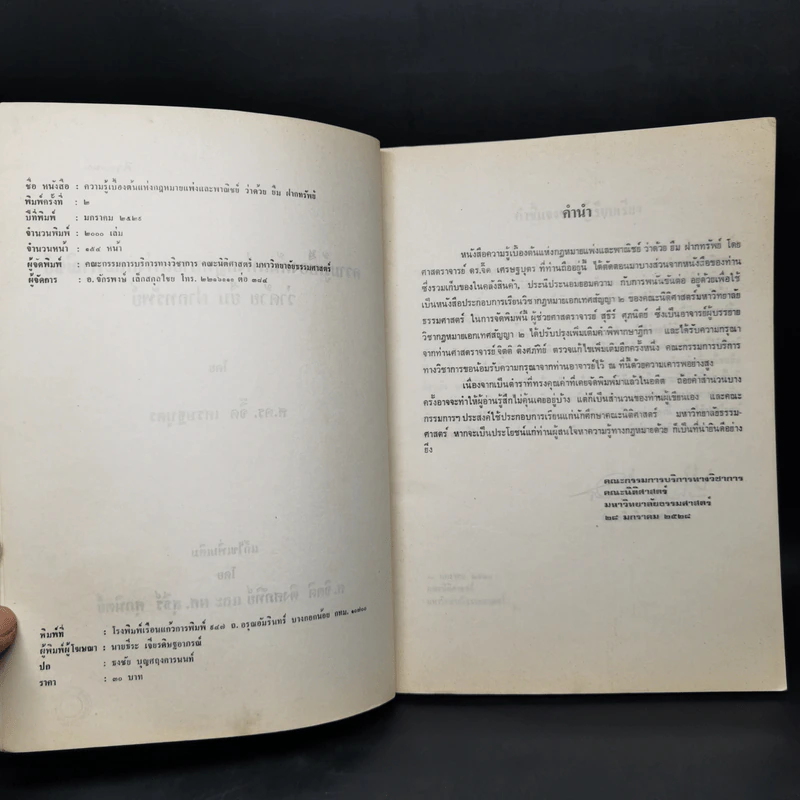 ชื่อ หนังสือ : ความรู้เบื้องต้นแห่งกฎหมายแพ่งและพาณิชย์ ว่าด้วย ยืม ฝากทรัพย์
พิมพ์ครั้งที่ : ๒
ปีที่พิมพ์ : มกราคม ๒๕๒๙
จำนวนพิมพ์ : ๒๐๐๐ เล่ม
จำนวนหน้า : ๑๕๔ หน้า
ผู้จัดพิมพ์ : คณะกรรมการบริการทางวิชาการ คณะนิติศาสตร์ มหาวิทยาลัยธรรมศาสตร์
ผู้จัดการ : อ.จักรพาษ์ เล็กสกุลไชย โทร. ๒๒๑๖๑๑๑ ต่อ
พิมพ์ที่ : โรงพิมพ์เรือนแก้วการพิมพ์ ๙๔๗ ถ.อรุณอัมรินทร์ บางกอกน้อย กทม.
ผู้พิมพ์ผู้โฆษณา : นายธีระ เจียรดิษฐอาภรณ์
ปก : ธงชัย บุญศฤงคารนนท์
ราคา : ๓๐ บาท
คำนำ
หนังสือความรู้เบื้องต้นแห่งกฎหมายแพ่งและพาณิชย์ ว่าด้วย ยืม ฝากทรัพย์ โดย
ศาสตราจารย์ ดร.จี๊ด เศรษฐบุตร ที่ท่านถืออยู่นี้ ได้ตัดตอนมาบางส่วนจากหนังสือของท่าน
ซึ่งรวมเก็บของในคลังสินค้า, ประนีประนอมยอมความ กับการพนันขันต่อ อยู่ด้วยเพื่อใช้
เป็นหนังสือประกอบการเรียนวิชากฎหมายเอกเทศสัญญา ๒ ของคณะนิติศาสตร์มหาวิทยาลัย
ธรรมศาสตร์ ในการจัดพิมพ์นี้ ผู้ช่วยศาสตราจารย์ สุธีร์ ศุภนิตย์ ซึ่งเป็นอาจารย์ผู้บรรยาย
วิชากฎหมายเอกเทศสัญญา ๒ ได้ปรับปรุงเพิ่มเติมคำพิพากษาฎีกา และได้รับความกรุณา
จากท่านศาสตราจารย์จิตติ ติงศภัทิย์ ตรวจแก้ไขเพิ่มเติมอีกครั้งหนึ่ง คณะกรรมการบริการ
ทางวิชาการขอน้อมรับความกรุณาจากท่านอาจารย์ไว้ ณ ที่นี้ด้วยความเคารพอย่างสูง
เนื่องจากเป็นตำราที่ทรงคุณค่าที่เคยจัดพิมพ์มาแล้วในอดีต ถ้อยคำสำนวนบาง
ครั้งอาจจะทำให้ผู้อ่านรู้สึกไม่คุ้นเคยอยู่บ้าง แต่ก็เป็นสำนวนของท่านผู้เขียนเอง และคณะ
กรรมการฯ ประสงค์ใช้ประกอบการเรียนแก่นักศึกษาคณะนิติศาสตร์ มหาวิทยาลัยธรรม-
ศาสตร์ หากจะเป็นประโยชน์แก่ท่านผู้สนใจหาความรู้ทางกฎหมายด้วย ก็เป็นที่น่ายินดีอย่าง
ยิ่ง
คณะกรรมการบริการทางวิชาการ
คณะนิติศาสตร์
มหาวิทยาลัยธรรมศาสตร์
๒๘ มกราคม ๒๕๒๘